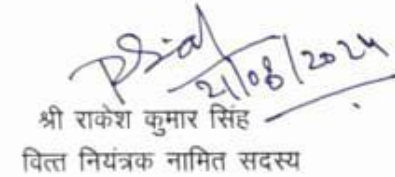 21/08/2024
श्री राकेश कुमार सिंह
वित्त नियंत्रक नामित सदस्य